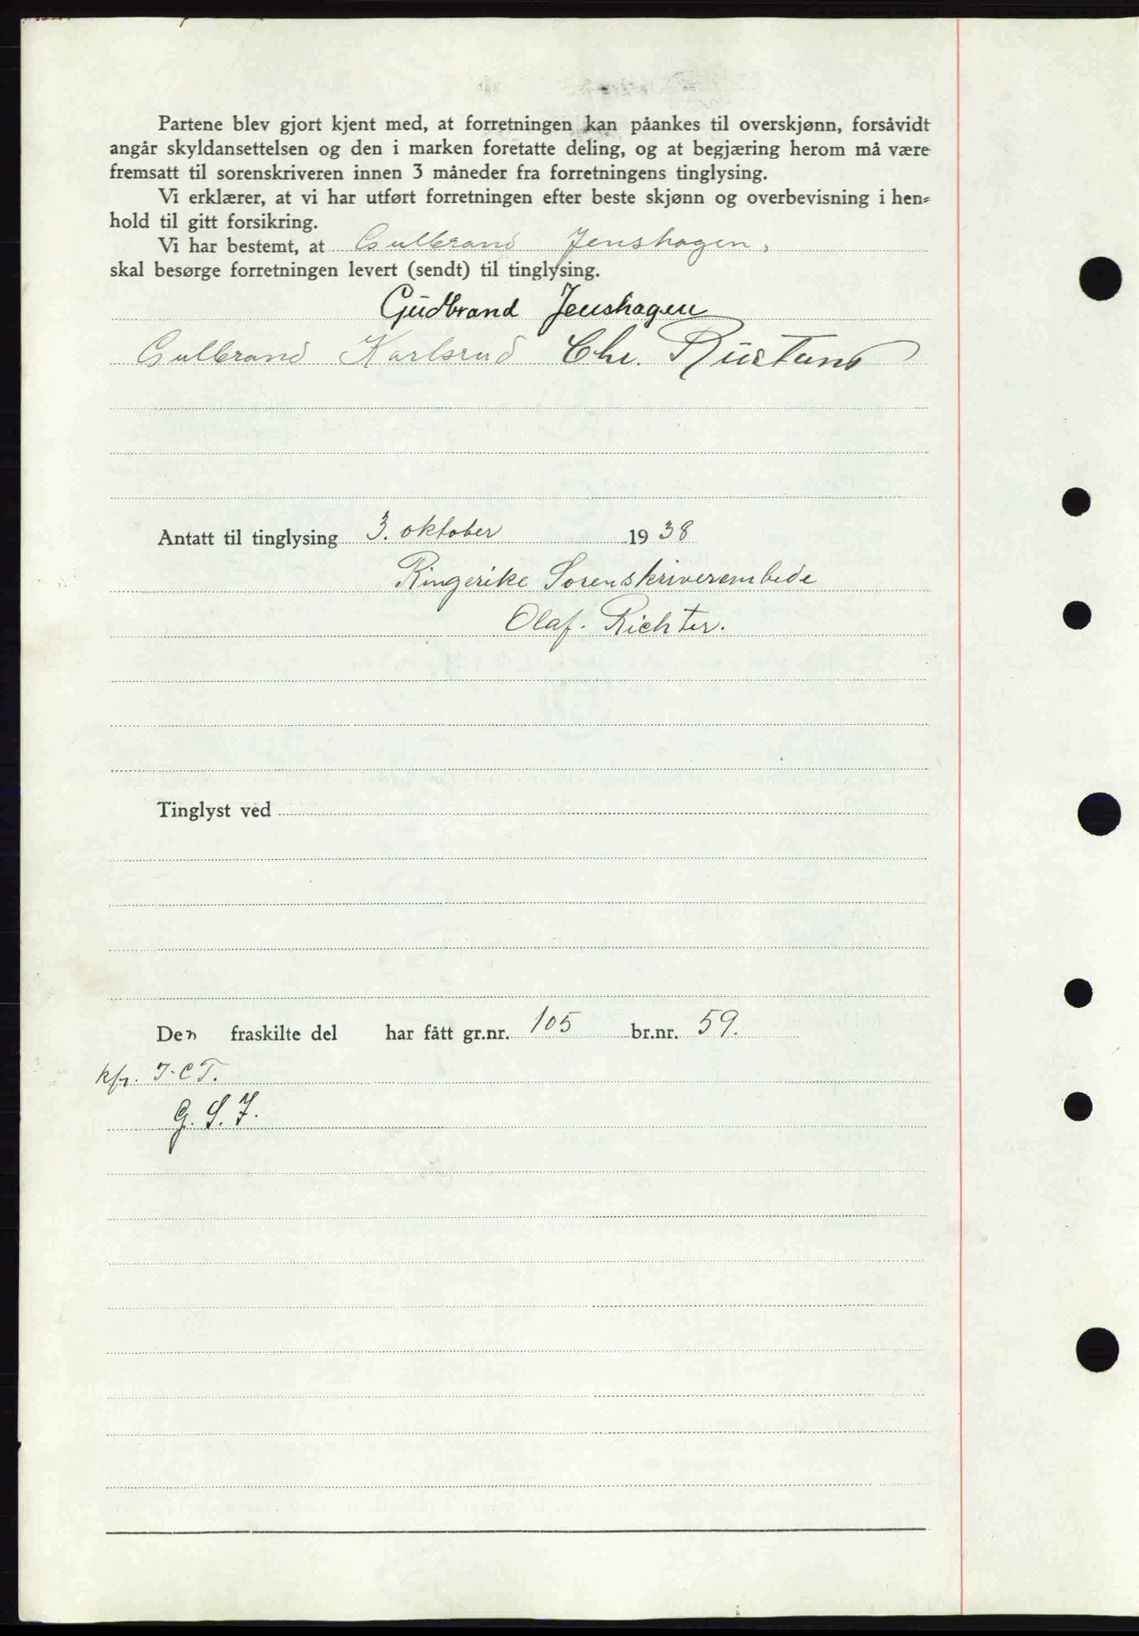 Partene blev gjort kjent med, at forretningen kan påankes til overskjønn, forsåvidt
angår skyldansettelsen og den i marken foretatte deling, og at begjæring herom må være
fremsatt til sorenskriveren innen 3 måneder fra forretningens tinglysing.
Vi erklærer, at vi har utført forretningen efter beste skjønn og overbevisning i hen-
hold til gitt forsikring.
Vi har bestemt, at Gulbrand Jenshagen,
skal besørge forretningen levert (sendt) til tinglysing.
Gudbrand Jenshagen
Gulbrand Karlsrud Chr. Rustand
Antatt til tinglysing 3. oktober 1938
Ringerike Sorenskriverembede
Olaf. Richter.
Tinglyst ved
Den fraskilte del har fått gr.nr. 105 br.nr. 59.
kfr. J.C T.
G. S. J.